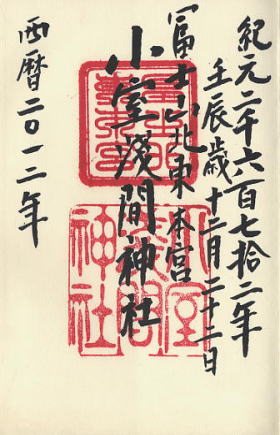 紀元二千六百七拾二年
壬辰歳十二月二十二日
冨士山北東本宮
小室浅間神社
西暦二〇一二年